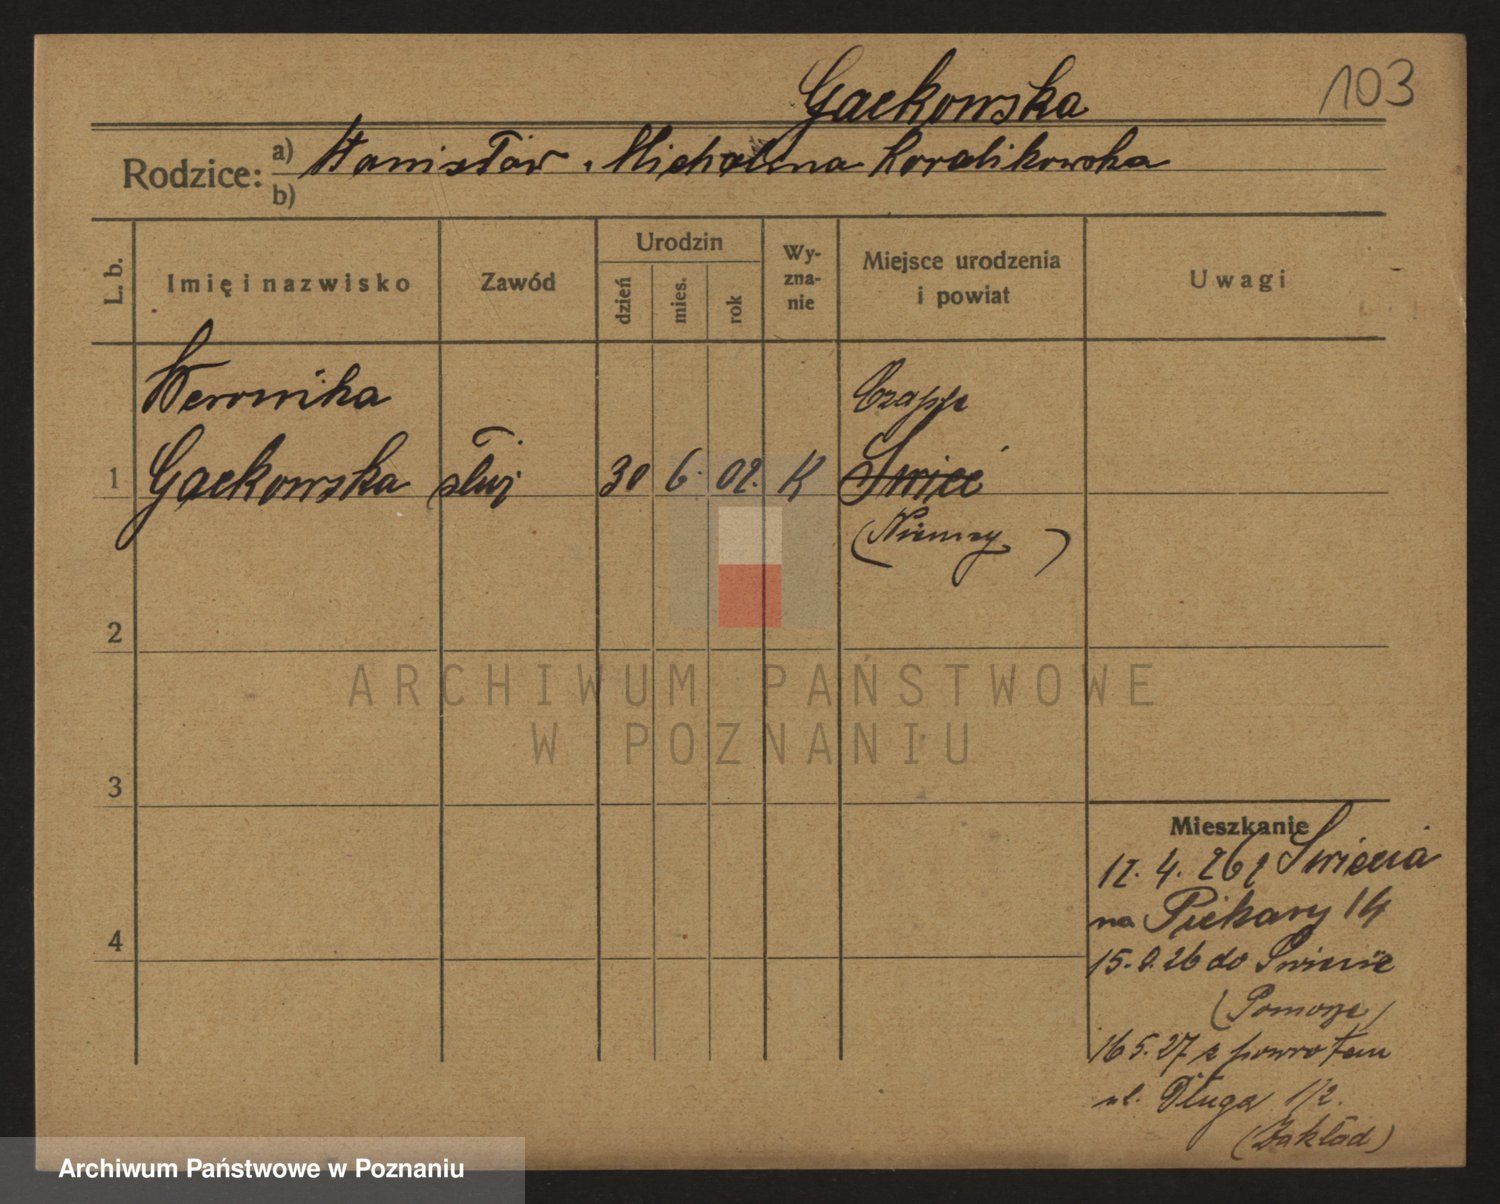 Gackowska
103
Rodzice: a) Stanisław, Michalina Koralikowska
b)
L. b.
Imię i nazwisko
Zawód
Urodzin
dzień
mies.
rok
Wy-
zna-
nie
Miejsce urodzenia
i powiat
Uwagi
Weronika
Czaple
1 Gackowska służ 30 6. 02. K Świeć
(Niemcy)
2
ARCHIWUM PAŃSTWOWE
W POZNANIU
3
4
Mieszkanie
12. 4. 26 z Świecia
na Piekary 14
15. 9. 26 do Świecie
(Pomorze)
16 5. 27 z powrotem
ul. Długa 1/2.
(Zakład)
Archiwum Państwowe w Poznaniu